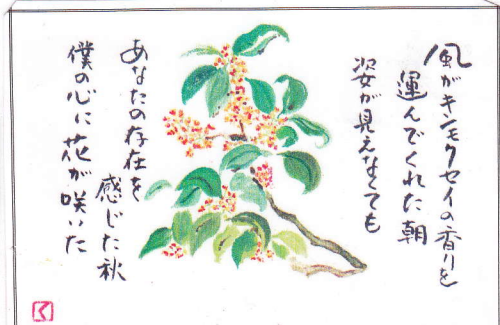 風がキンモクセイの香りを
運んでくれた朝
姿が見えなくても
あなたの存在を
感じた秋
僕の心に花が咲いた
く